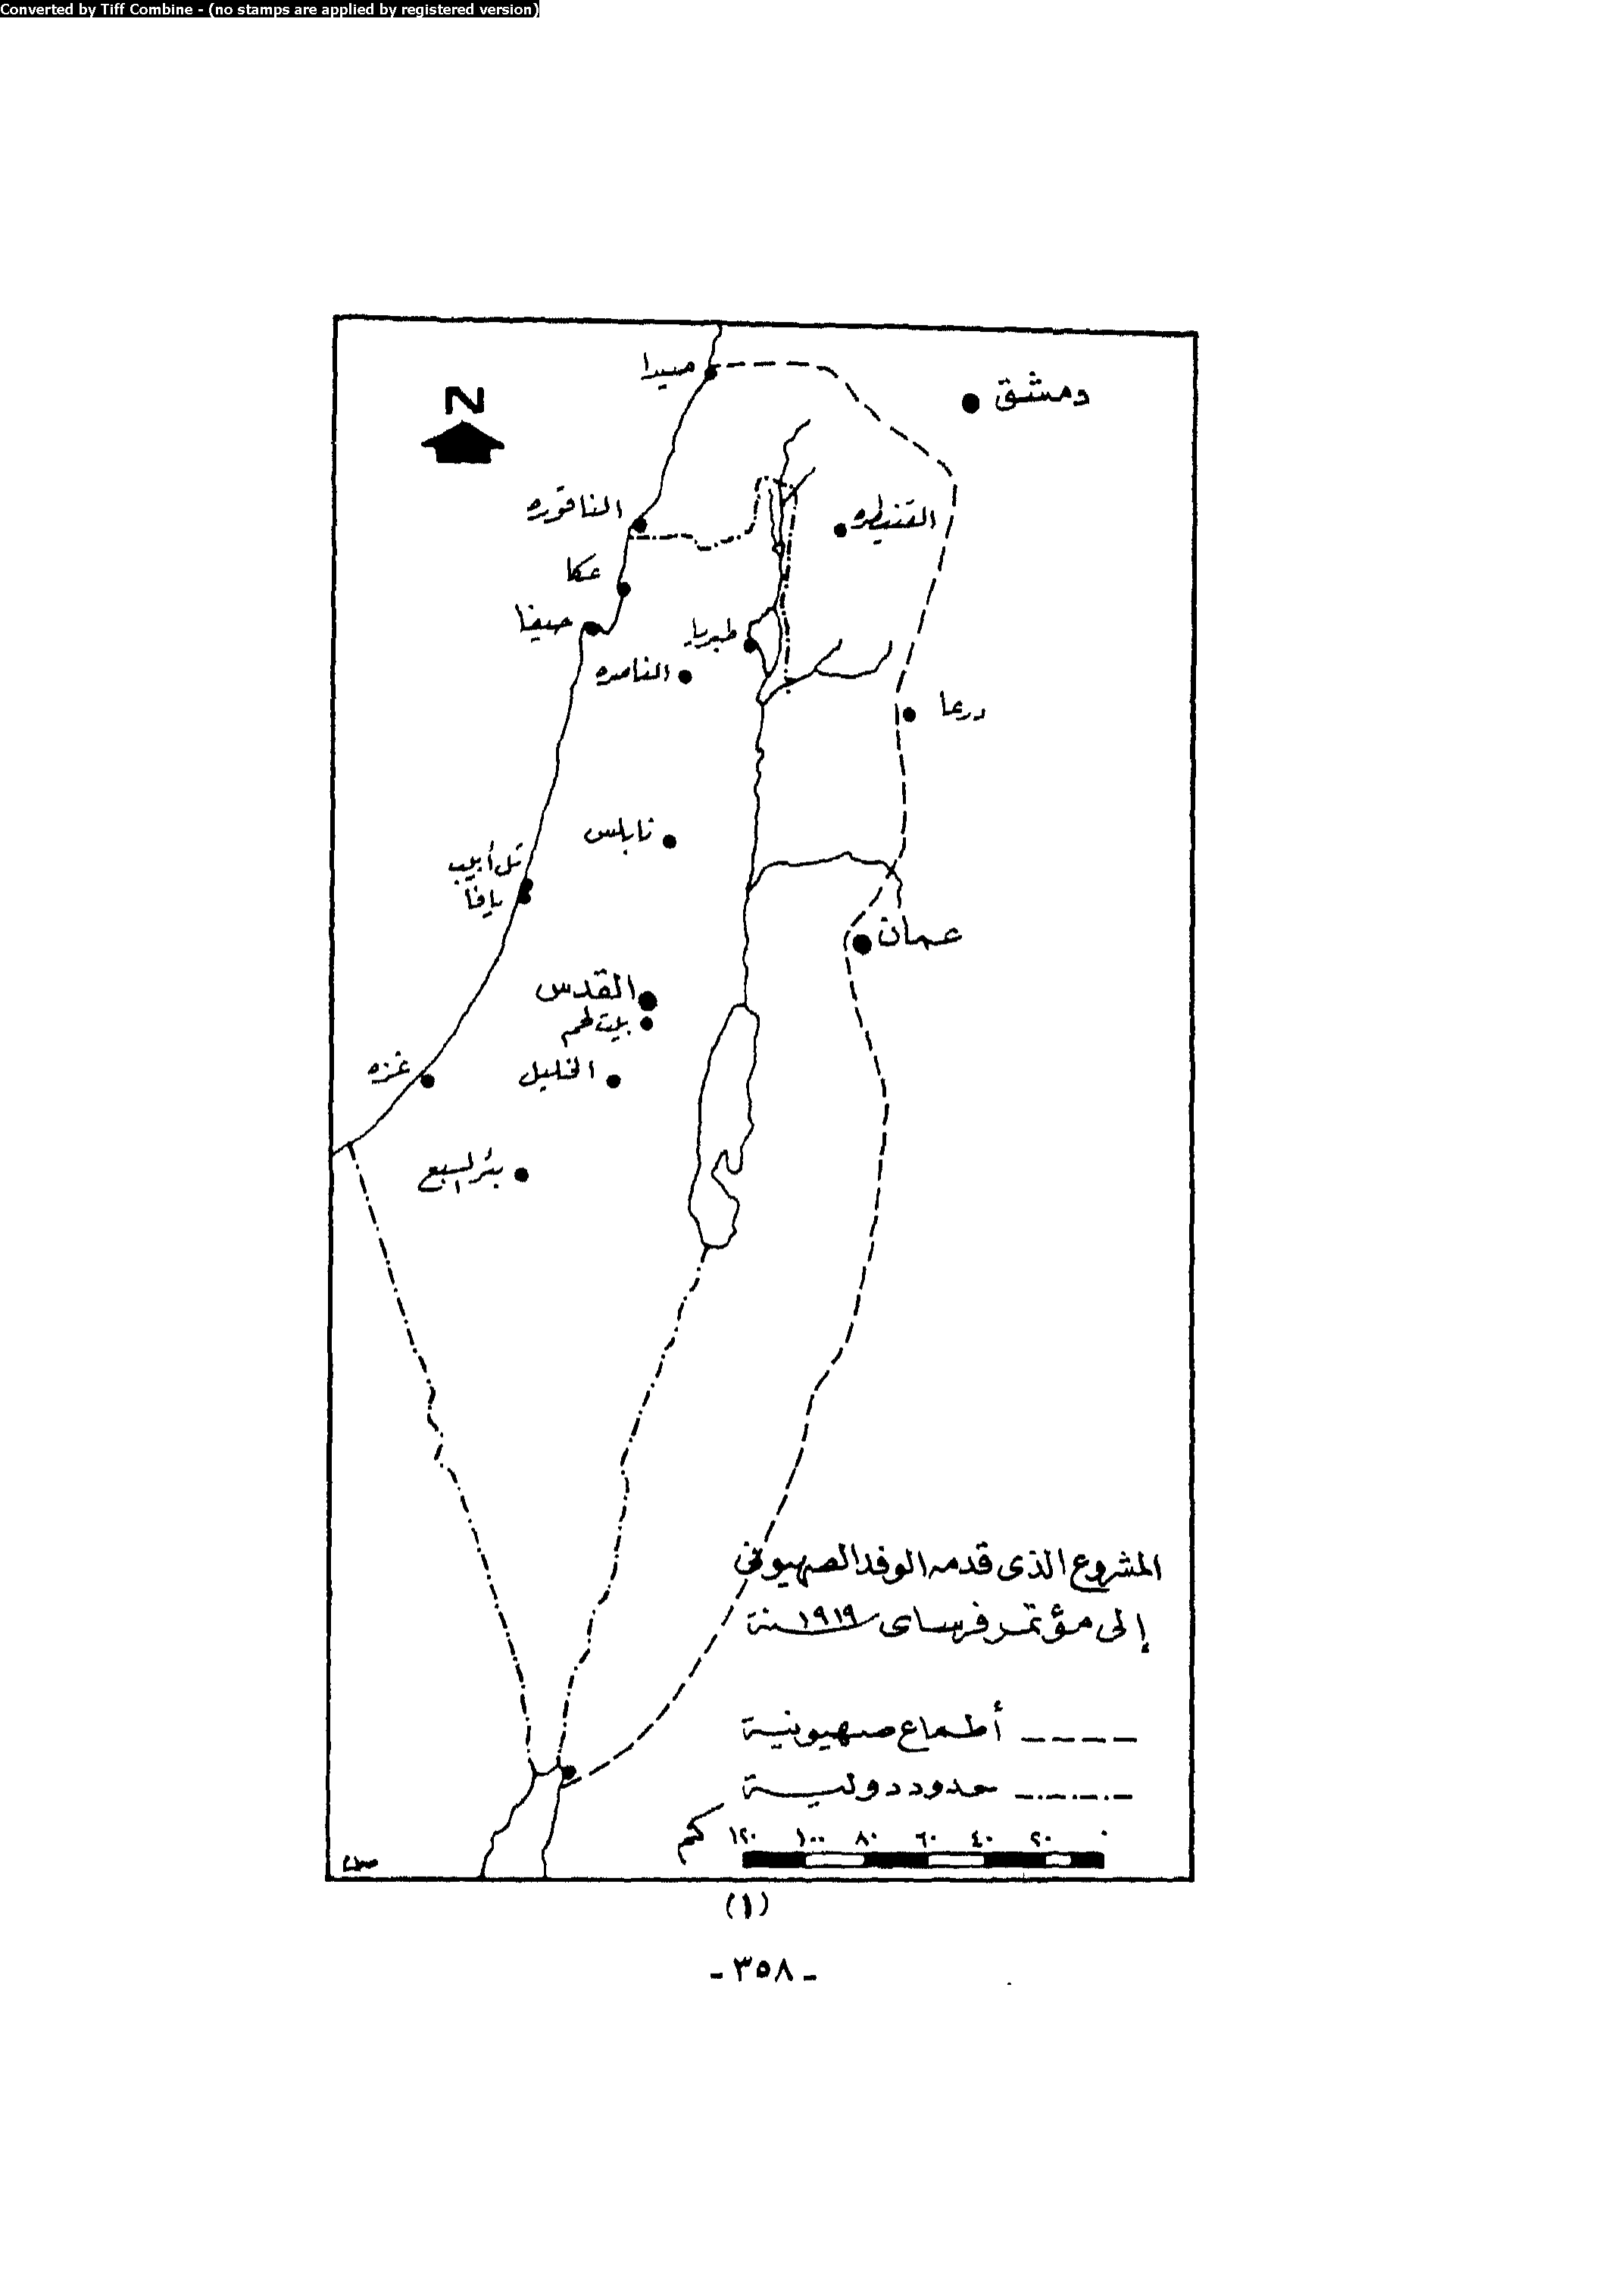 Converted by Tiff Combine - (no stamps are applied by registered version)
صيدا
دمشق
N
الناقوره
القنيطره
عكا
حيفا
طبريا
الناصره
درعا
نابلس
تل أبيب
يافا
عمان
القدس
بيت لحم
غزه
الخليل
بئر السبع
المشروع الذى قدمه الوفد الصهيونى
إلى مؤتمر فرساى سنة ١٩١٩
أطماع صهيونية
حدود دولية
كم ١٢٠ ١٠٠ ٨٠ ٦٠ ٤٠ ٢٠ ٠
(١)
- ٣٥٨ -